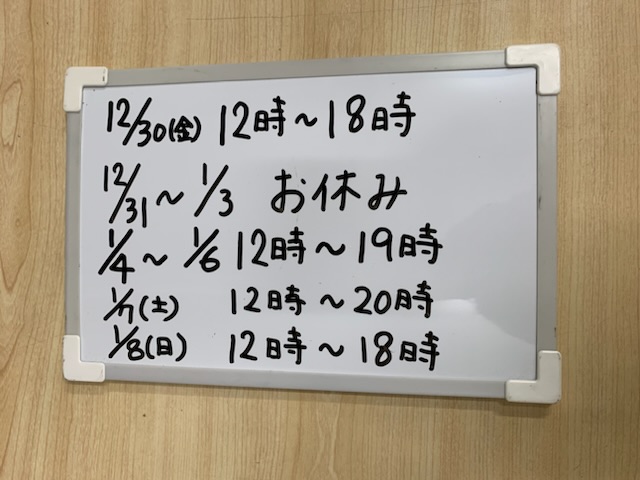 12/30(金) 12時～18時
12/31～1/3 お休み
1/4～1/6 12時～19時
1/7(土) 12時～20時
1/8(日) 12時～18時